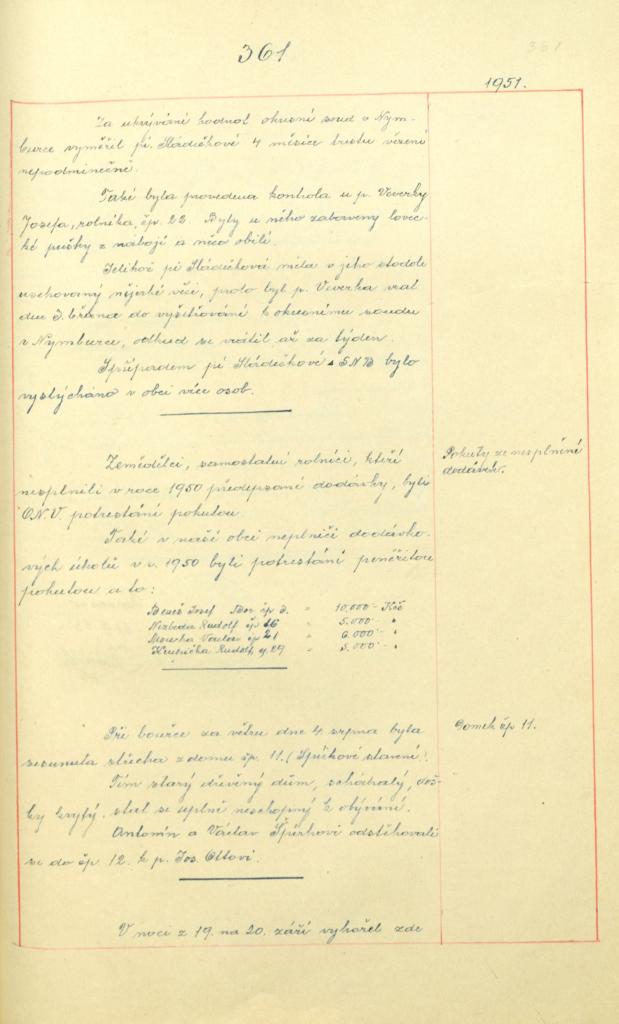 361
1951.
Za ukrývání hodnot okresní soud v Nym-
burce vyměřil pí. Sládičkové 4 měsíce trestu vězení
nepodmínečně.
Také byla provedena kontrola u p. Veverky
Josefa, rolníka, čp. 22. Byly u něho zabaveny lovec-
ké pušky z náboji a něco obilí.
Jelikož pí Sládičková měla v jeho stodole
uschovaný nějaké věci, proto byl p. Veverka vzal
dne 3. března do vyšetřování k okresnímu soudu
v Nymburce, odkud se vrátil až za týden.
S případem pí Sládičkové SNB bylo
vyslýcháno v obci více osob.
Zemědělci, samostatní rolníci, kteří
nesplnili v roce 1950 předepsané dodávky, byli
O.N.V. potrestáni pokutou.
Pokuty za nesplnění
dodávek.
Také v naší obci neplniči dodávko-
vých úkolů v r. 1950 byli potrestáni peněžitou
pokutou a to:
Beneš Josef čp 3. " 10.000 - Kčs
Nezbeda Rudolf čp 16 " 5.000 - "
Václav čp 21 " 6.000 - "
Krupička Rudolf, č. 29 " 5.000 - "
Při bouřce za větru dne 4. srpna byla
sesunuta střecha z domu čp. 11. (Špírkové stavení).
Domek čp 11.
Tím starý dřevěný dům, schátralý, doš-
ky krytý, stal se úplně neschopný k obývání.
Antonín a Václav Špírkovi odstěhovali
se do čp. 12. k p. Jos. Ottovi.
V noci z 19. na 20. září vyhořel zde